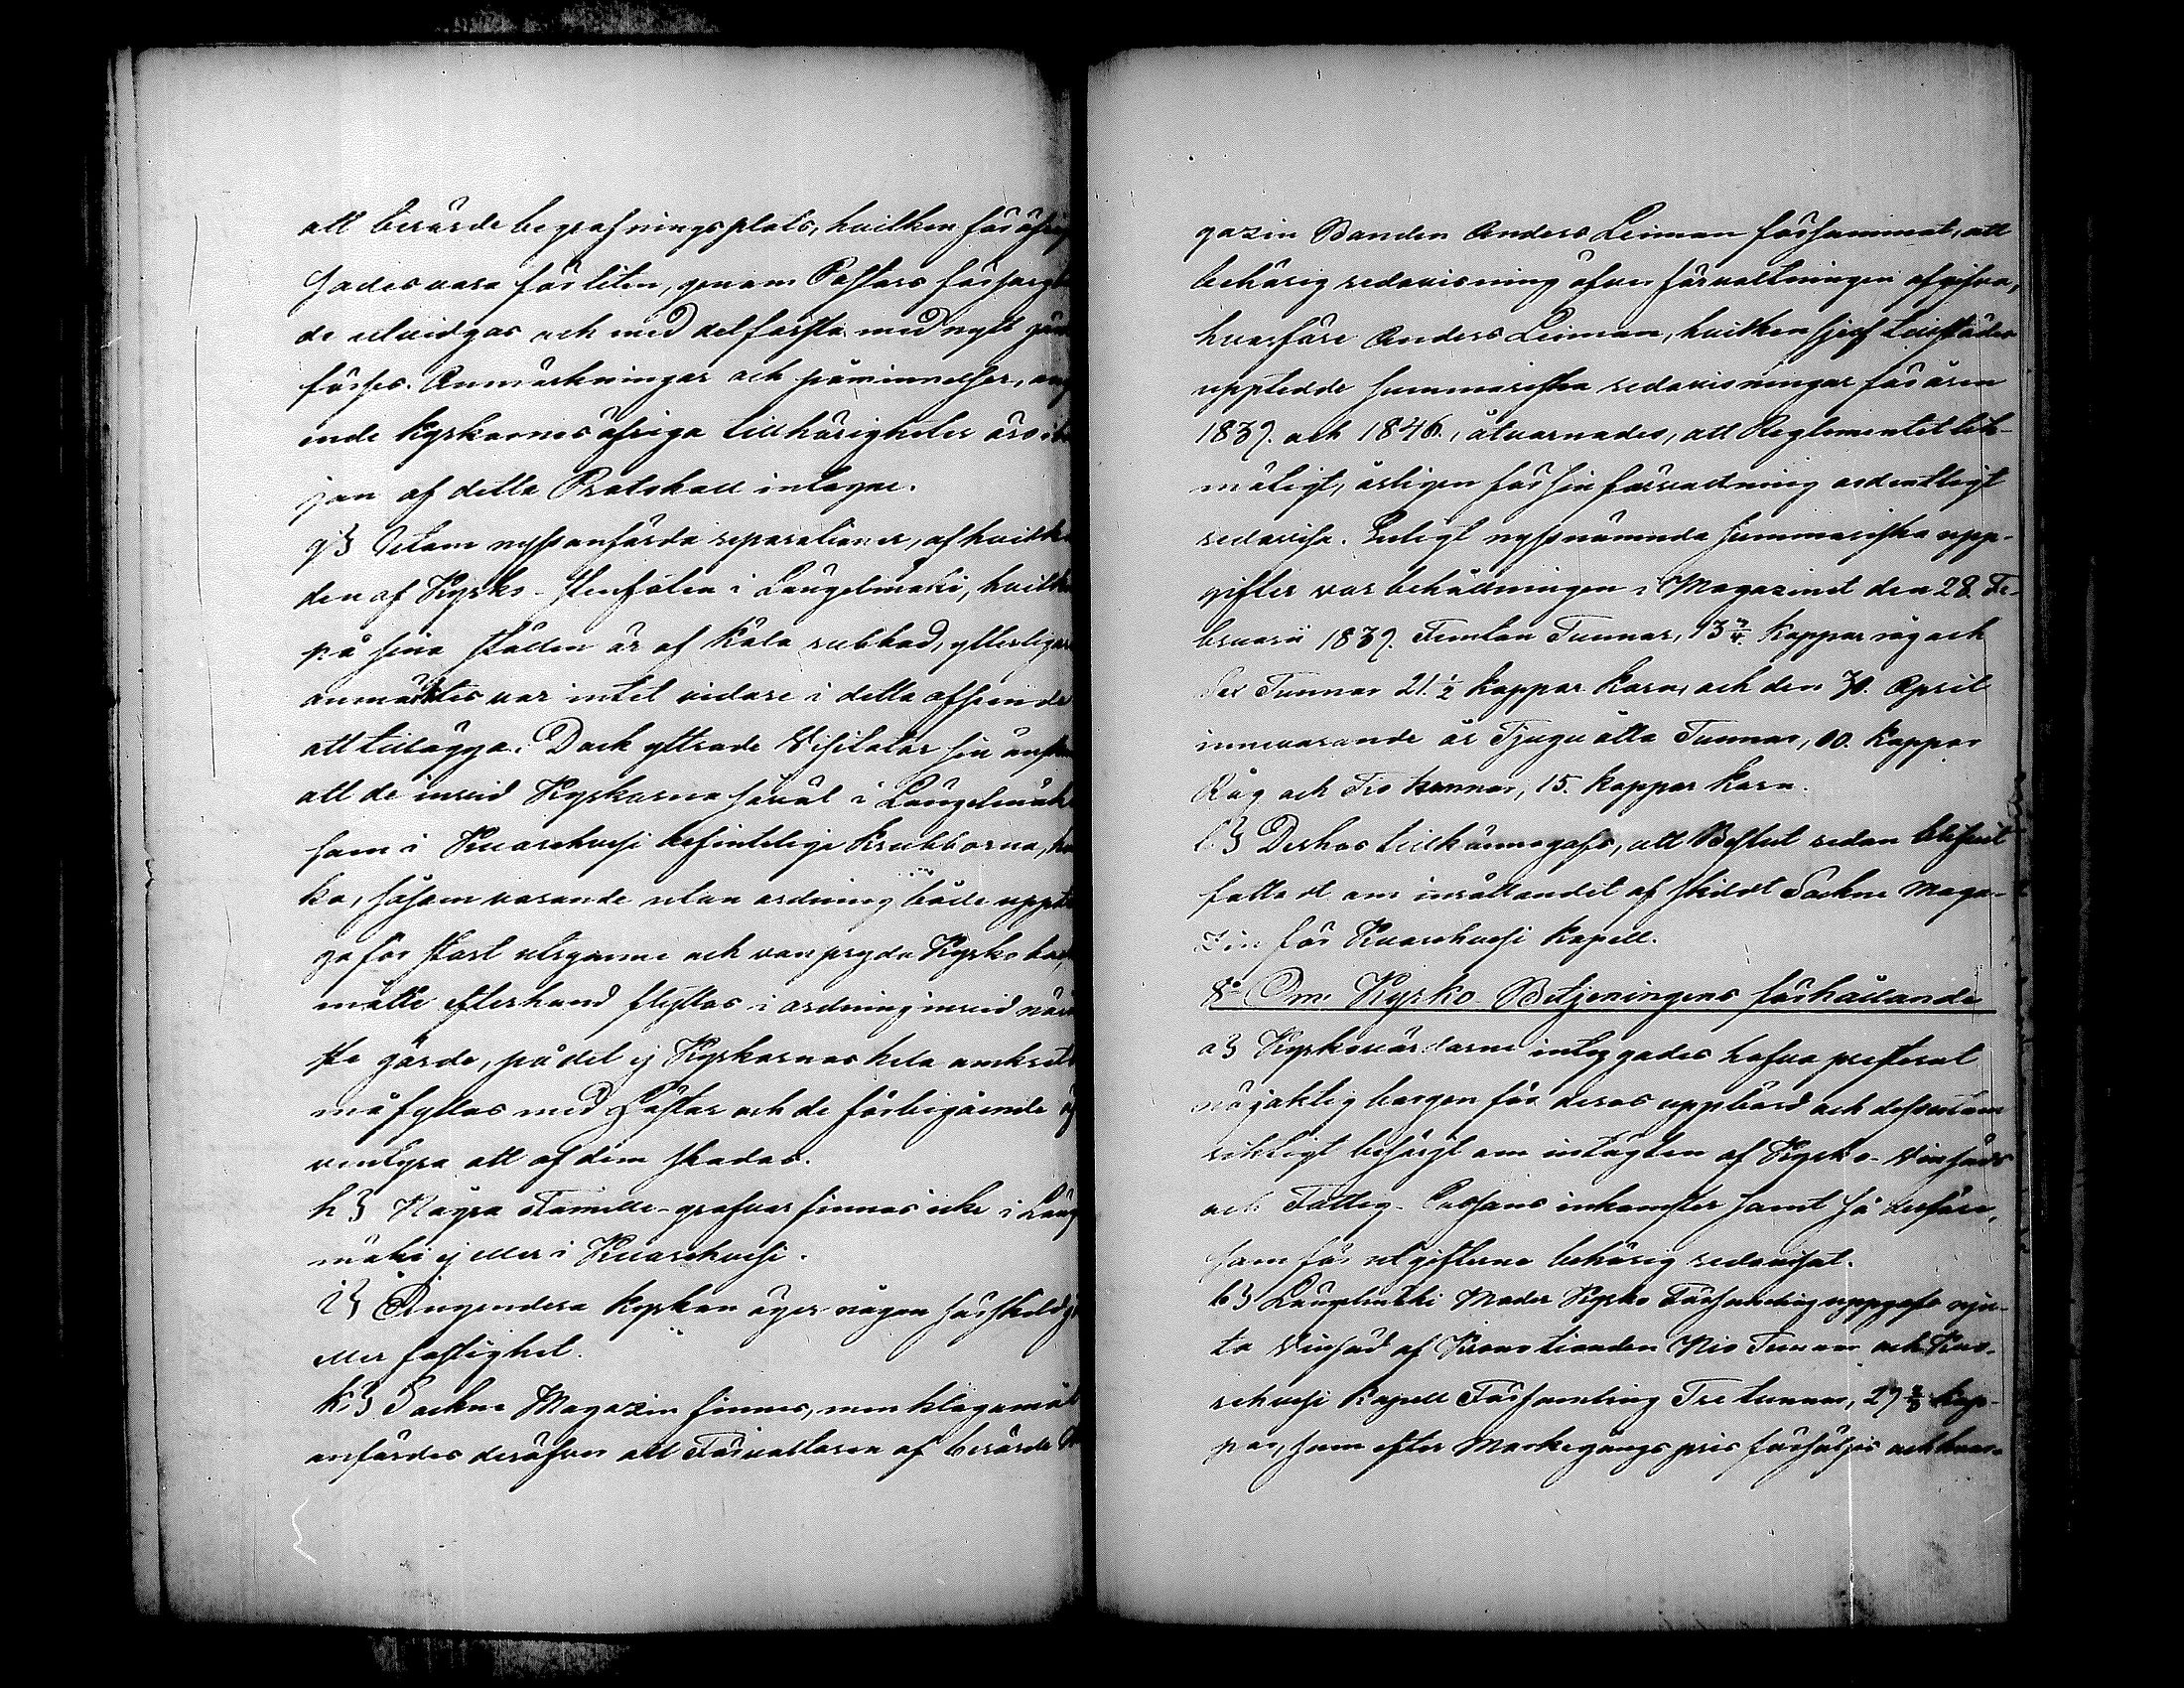 att berörde begrafningsplats, hvilken för öfrigt
sades vara för liten, genom Pastors försorg
de utvidgas och med det första med nytt gär
förses. Anmärkningar och påminnelser, ang
ende kyrkornes öfriga tillhörigheter äro i
jan af detta Protokoll intagne.
g § Utom nyssanförda reparationer, af hvilka
den af Kyrko-stenfoten i Längelmäki, hvilken
på sina ställen är af käla rubbad, ytterligare
anmärktes var intet vidare i detta afseende
att tillägga. Dock yttrade Visitator sin önskan
att de invid Kyrkorna såväl i Längelmäki
som i Kuorehvesi befinteliga krubborna,
ka, såsom varande utan ordning både uppta
ga för stort utrymme och vanpryda Kyrkobac
måtte efterhand flyttas i ordning invid när
ste gärde, på det ej Kyrkornas hela omkrets
må fyllas med Hästar och de förbigående
ventyra att af dem skadas.
h § Några Familie-grafvar finnas icke i Läng
mäki ej eller i Kuorehvesi.
i § Ingendera kyrkan äger någon särskild
eller fastighet.
k § Sockne Magazin finnes, men klagomål
anfördes deröfver att Förvaltaren af berörde
gazin Bonden Anders Leiman försummat, att
behörig redovisning öfver förvaltningen afgifva,
hvarföre Anders Leiman, hvilken sjelf tillstädes
uppledde summariska redovisningar för åren
1837. och 1846., åtvarnades, att Reglementet lik-
mätigt, årligen för sin förvaltning ordentligt
redovisa. Enligt nyssnämnda summariska upp-
gifter var behållningen i Magazinet den 28. Fe-
bruarii 1837. Femton Tunnor, 13 3/4. Kappor råg och
Sex Tunnor 21. 1/2 kappor korn, och den 30. April
innevarande år Tjuguåtta Tunnor, 10. kappor
Råg och Tio tunnor, 15. kappor korn.
l. § Derhos tillkännagafs, att Beslut redan blifvit
fattadt om inrättandet af skildt Sockne Maga-
zin för Kuorehvesi Kapell.
8o Om Kyrko-Betjeningens förhållande
a § Kyrkovärdarne intygades hafva presterat
nöjaktig borgen för deras uppbörd och dessutom
riktigt besörjt om intägten af Kyrko-Vinsäds
och Fattig-Cassans inkomster samt så derföre,
som för utgifterne behörig redovisat.
b § Längelmäki Moder Kyrko Församling uppgafs nju-
ta Vinsäd af Kronotionden Nio Tunnor och Kuo-
rehvesi Kapell Församling Tre tunnor, 27 2/3 kap-
por, som efter Markegångs pris försäljes och hvar-